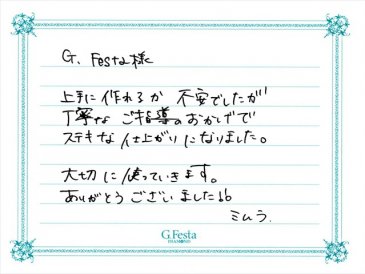 G. Festa様
上手に作れるか 不安でしたが
丁寧な ご指導のおかげで
ステキな 仕上がりになりました。
大切に使っていきます。
ありがとうございました!!
ミムラ.
G.Festa
DIAMOND